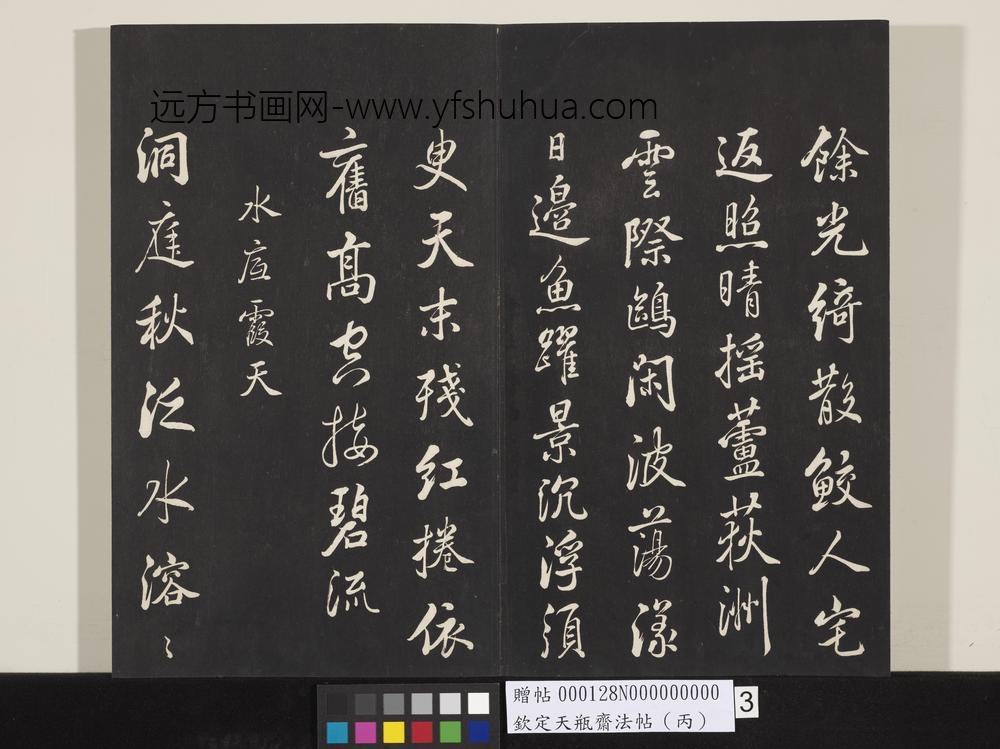 远方书画网-www.yfshuhua.com
餘光綺散鮫人宅
返照晴摇蘆荻洲
雲際鷗閑波蕩漾
日邊魚躍景沉浮須
臾天末殘红捲依
舊高空接碧流
水底霞天
洞庭秋泛水溶〻
贈帖 000128N000000000
欽定天瓶齋法帖（丙）
3